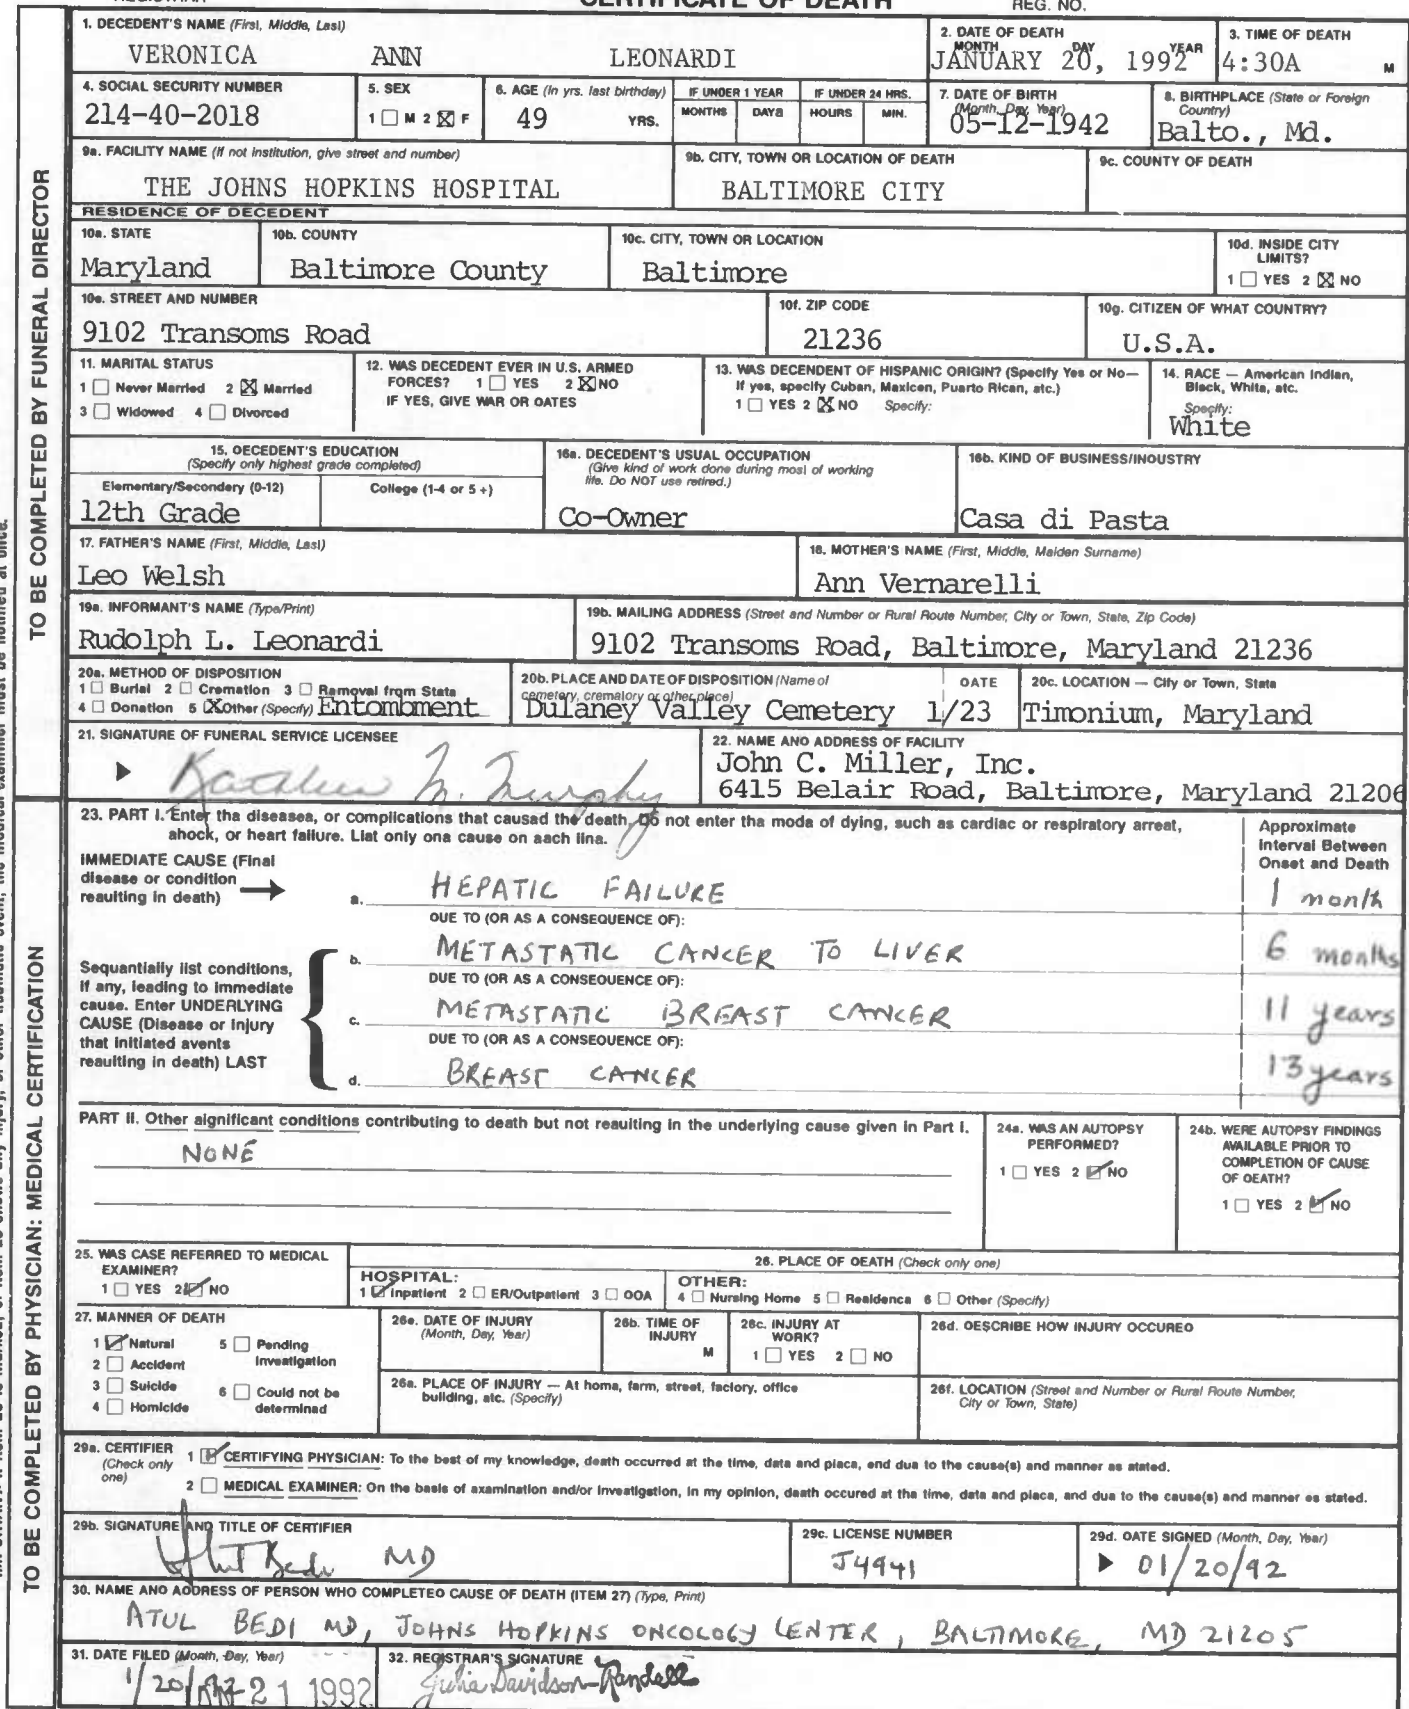 CERTIFICATE OF DEATH
REG. NO.
TO BE COMPLETED BY FUNERAL DIRECTOR
1. DECEDENT'S NAME (First, Middle, Last)
VERONICA ANN LEONARDI
2. DATE OF DEATH
MONTH DAY YEAR
JANUARY 20, 1992
3. TIME OF DEATH
4:30A M
4. SOCIAL SECURITY NUMBER
214-40-2018
5. SEX
1 ☐ M 2 ☒ F
6. AGE (In yrs. last birthday)
49 YRS.
IF UNDER 1 YEAR
MONTHS DAYS
IF UNDER 24 HRS.
HOURS MIN.
7. DATE OF BIRTH
(Month, Day, Year)
05-12-1942
8. BIRTHPLACE (State or Foreign
Country)
Balto., Md.
9a. FACILITY NAME (If not institution, give street and number)
THE JOHNS HOPKINS HOSPITAL
9b. CITY, TOWN OR LOCATION OF DEATH
BALTIMORE CITY
9c. COUNTY OF DEATH
RESIDENCE OF DECEDENT
10a. STATE
Maryland
10b. COUNTY
Baltimore County
10c. CITY, TOWN OR LOCATION
Baltimore
10d. INSIDE CITY
LIMITS?
1 ☐ YES 2 ☒ NO
10e. STREET AND NUMBER
9102 Transoms Road
10f. ZIP CODE
21236
10g. CITIZEN OF WHAT COUNTRY?
U.S.A.
11. MARITAL STATUS
1 ☐ Never Married 2 ☒ Married
3 ☐ Widowed 4 ☐ Divorced
12. WAS DECEDENT EVER IN U.S. ARMED
FORCES? 1 ☐ YES 2 ☒ NO
IF YES, GIVE WAR OR DATES
13. WAS DECENDENT OF HISPANIC ORIGIN? (Specify Yes or No—
If yes, specify Cuban, Mexican, Puerto Rican, etc.)
1 ☐ YES 2 ☒ NO Specify:
14. RACE — American Indian,
Black, White, etc.
Specify:
White
15. DECEDENT'S EDUCATION
(Specify only highest grade completed)
Elementary/Secondary (0-12)
12th Grade
College (1-4 or 5+)
16a. DECEDENT'S USUAL OCCUPATION
(Give kind of work done during most of working
life. Do NOT use retired.)
Co-Owner
16b. KIND OF BUSINESS/INDUSTRY
Casa di Pasta
17. FATHER'S NAME (First, Middle, Last)
Leo Welsh
18. MOTHER'S NAME (First, Middle, Maiden Surname)
Ann Vernarelli
19a. INFORMANT'S NAME (Type/Print)
Rudolph L. Leonardi
19b. MAILING ADDRESS (Street and Number or Rural Route Number, City or Town, State, Zip Code)
9102 Transoms Road, Baltimore, Maryland 21236
20a. METHOD OF DISPOSITION
1 ☐ Burial 2 ☐ Cremation 3 ☐ Removal from State
4 ☐ Donation 5 ☒ Other (Specify) Entombment
20b. PLACE AND DATE OF DISPOSITION (Name of
cemetery, crematory or other place)
DATE
Dulaney Valley Cemetery 1/23
20c. LOCATION — City or Town, State
Timonium, Maryland
21. SIGNATURE OF FUNERAL SERVICE LICENSEE
Kathleen M. Murphy
22. NAME AND ADDRESS OF FACILITY
John C. Miller, Inc.
6415 Belair Road, Baltimore, Maryland 21206
TO BE COMPLETED BY PHYSICIAN: MEDICAL CERTIFICATION
23. PART I. Enter the diseases, or complications that caused the death. Do not enter the mode of dying, such as cardiac or respiratory arrest,
shock, or heart failure. List only one cause on each line.
Approximate
Interval Between
Onset and Death
IMMEDIATE CAUSE (Final
disease or condition
resulting in death)
a. HEPATIC FAILURE 1 month
DUE TO (OR AS A CONSEQUENCE OF):
Sequentially list conditions,
if any, leading to immediate
cause. Enter UNDERLYING
CAUSE (Disease or injury
that initiated events
resulting in death) LAST
b. METASTATIC CANCER TO LIVER 6 months
DUE TO (OR AS A CONSEQUENCE OF):
c. METASTATIC BREAST CANCER 11 years
DUE TO (OR AS A CONSEQUENCE OF):
d. BREAST CANCER 13 years
PART II. Other significant conditions contributing to death but not resulting in the underlying cause given in Part I.
NONE
24a. WAS AN AUTOPSY
PERFORMED?
1 ☐ YES 2 ☑ NO
24b. WERE AUTOPSY FINDINGS
AVAILABLE PRIOR TO
COMPLETION OF CAUSE
OF DEATH?
1 ☐ YES 2 ☑ NO
25. WAS CASE REFERRED TO MEDICAL
EXAMINER?
1 ☐ YES 2 ☑ NO
26. PLACE OF DEATH (Check only one)
HOSPITAL:
1 ☑ Inpatient 2 ☐ ER/Outpatient 3 ☐ DOA
OTHER:
4 ☐ Nursing Home 5 ☐ Residence 6 ☐ Other (Specify)
27. MANNER OF DEATH
1 ☑ Natural 5 ☐ Pending
Investigation
2 ☐ Accident
3 ☐ Suicide 6 ☐ Could not be
determined
4 ☐ Homicide
28a. DATE OF INJURY
(Month, Day, Year)
28b. TIME OF
INJURY
M
28c. INJURY AT
WORK?
1 ☐ YES 2 ☐ NO
28d. DESCRIBE HOW INJURY OCCURED
28e. PLACE OF INJURY — At home, farm, street, factory, office
building, etc. (Specify)
28f. LOCATION (Street and Number or Rural Route Number,
City or Town, State)
29a. CERTIFIER
(Check only
one)
1 ☑ CERTIFYING PHYSICIAN: To the best of my knowledge, death occurred at the time, date and place, and due to the cause(s) and manner as stated.
2 ☐ MEDICAL EXAMINER: On the basis of examination and/or investigation, in my opinion, death occured at the time, date and place, and due to the cause(s) and manner as stated.
29b. SIGNATURE AND TITLE OF CERTIFIER
Atul Bedi MD
29c. LICENSE NUMBER
J4941
29d. DATE SIGNED (Month, Day, Year)
01/20/92
30. NAME AND ADDRESS OF PERSON WHO COMPLETED CAUSE OF DEATH (ITEM 27) (Type, Print)
ATUL BEDI MD, JOHNS HOPKINS ONCOLOGY CENTER, BALTIMORE, MD 21205
31. DATE FILED (Month, Day, Year)
1/20/ 21 1992
32. REGISTRAR'S SIGNATURE
Julia Davidson-Randall